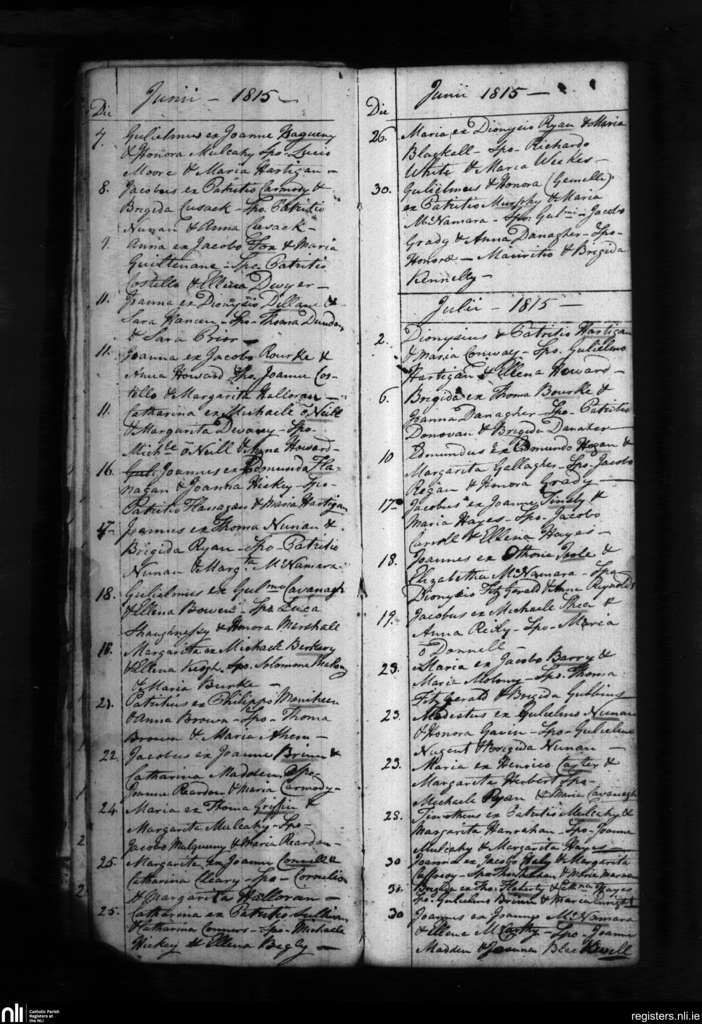 Junii - 1815 -
Die
7. Gulielmus ex Joanne
& Honora Mulcahy Spo-
Moore & Maria Hartigan -
8. Jacobus ex Patritio Carmody &
Brigida Cusack - Spo. Patritio
Nunan & Anna Cusack -
9. Anna ex Jacobo Fox & Maria
Spo Patritio
Costello & Ellena Dwyer -
11. Joanna ex Dionysio Dillane &
Sara Spo - Thoma Dundon
& Sara Prior -
11. Joanna ex Jacobo Rourke &
Anna Howard Spo. Joanne Cos-
tello & Margarita Halloran -
11. Catharina ex Michaele ō Neill
& Margarita Spo.
Mich.le ō Neill & Anna Howard -
16. Joannes ex Edmundo Fla-
nagan & Joanna Hickey - Spo
Patritio Flanagan & Maria Hartigan
17. Joannes ex Thoma Nunan &
Brigida Ryan - Spo - Patritio
Nunan & Marg.ta McNamara
18. Gulielmus ex Gul.mo Cavanagh
& Ellena Bowen - Spo Luca
Shaughnessy & Honora Marshall
18. Margarita ex Michaele Berkery
& Ellena Keogh, Spo. Solomone
& Maria Burke -
21. Patritius ex Philippo
& Anna Brown - Spo - Thoma
Brown & Maria Ahern -
22. Jacobus ex Joanne Brien &
Catharina Madden, Spo-
Joanna Reardon & Maria Carmody -
24. Maria ex Thoma Griffin &
Margarita Mulcahy - Spo -
Jacobo Mulqueny & Maria Reardon -
25. Margarita ex Joanne Connell &
Catharina Cleary - Spo - Cornelio
& Margarita Halloran -
25. Catharina ex Patritio
& Catharina Connors - Spo - Michaele
Hickey & Ellena Begly -
Junii 1815 -
Die
26. Maria ex Dionysio Ryan & Maria
Blackall - Spo - Richardo
White & Maria Weekes -
30. Gulielmus & Honora (Gemelli)
ex Patritio Murphy & Maria
McNamara - Spo. Gul.mi - Jacobo
Grady & Anna Danagher - Spo -
Honorae - Mauritio & Brigida
Kennelly -
Julii - 1815 -
2. Dionysius & Patritio Hartigan
& Maria Conway - Spo. Gulielmo
Hartigan & Ellena Howard -
6. Brigida ex Thoma Bourke &
Joanna Danagher - Spo - Patritio
Donovan & Brigida Danaher -
10 Edmundus Ex Edmundo Hogan &
Margarita Gallagher - Spo. Jacobo
Regan & Honora Grady -
17 Jacobus ex Joanne &
Maria Hayes - Spo. Jacobo
Carroll & Ellena Hayes -
18. Joannes ex Thoma &
Elizabetha McNamara - Spo
Dionysio FitzGerald & Anna Reynolds
19. Jacobus ex Michaele Shea &
Anna Reily - Spo - Maria
ō Donnell -
23. Maria ex Jacobo Barry &
Maria Molony - Spo. Thoma
FitzGerald & Brigida Gubbins
23. Modestus ex Gulielmo Nunan
& Honora Gavin - Spo - Gulielmo
Nugent & Brigida Nunan -
23. Maria ex Henrico Carter &
Margarita Herbert Spo -
Michaele Ryan & Maria Cavanagh
28. Timotheus ex Patritio Mulcahy &
Margarita Hanrahan - Spo - Joanne
Mulcahy & Margarita Hayes -
30 Joanna ex Jacobo Haly & Margarita
Spo & Maria
30. Brigida ex Tho. Flaherty & Hayes
Spo - Gulielmo Brien & Maria
30 Joannes ex Joanne McNamara
& Ellena McCarthy - Spo - Joanne
Madden & Joanna Blackwell
nli
Catholic Parish
Registers at
the NLI
registers.nli.ie